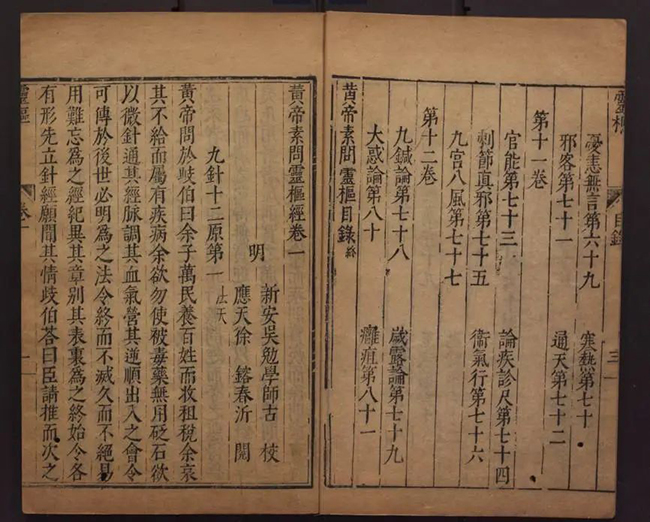 靈樞 目錄 三
憂恚無言第六十九 寒熱第七十
邪客第七十一 通天第七十二
第十一卷
官能第七十三 論疾診尺第七十四
刺節真邪第七十五 衞氣行第七十六
九宮八風第七十七
第十二卷
九鍼論第七十八 歲露論第七十九
大惑論第八十 癰疽第八十一
黃帝素問靈樞目錄終
黃帝素問靈樞經卷一
明 新安吳勉學師古 校
應天徐 鎔春沂 閱
九針十二原第一 法天
黃帝問於歧伯曰余子萬民養百姓而收租稅余哀
其不給而屬有疾病余欲勿使被毒藥無用砭石欲
以微針通其經脈調其血氣營其逆順出入之會令
可傳於後世必明為之法令終而不滅久而不絕易
用難忘為之經紀異其章別其表裏為之終始令各
有形先立針經願聞其情歧伯荅曰臣請推而次之
靈樞 卷一 一